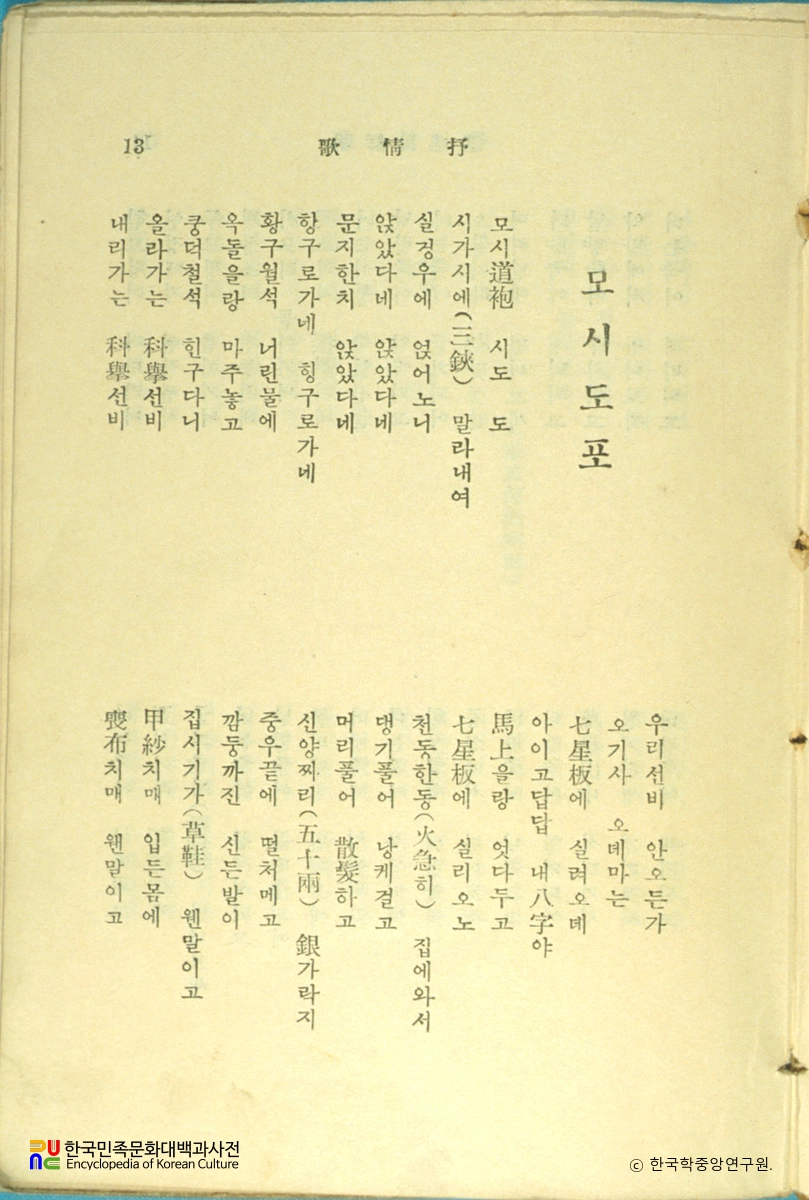 13
抒情歌
모시도포
모시道袍 시도 도
시가시에(三鋏) 말라내여
실겅우에 얹어노니
앉았다네 앉았다네
문지한치 앉았다네
항구로가네 힝구로가네
황구월석 너린물에
옥돌을랑 마주놓고
쿵덕철석 힌구다니
올라가는 科擧선비
내리가는 科擧선비
우리선비 안오든가
오기사 오데마는
七星板에 실려오데
아이고답답 내八字야
馬上을랑 엇다두고
七星板에 실리오노
천동한동(火急히) 집에와서
댕기풀어 낭케걸고
머리풀어 散髮하고
신양찌리(五十兩) 銀가락지
중우끝에 떨처메고
깜둥까진 신든발이
집시기가(草鞋) 웬말이고
甲紗치매 입든몸에
喪布치매 웬말이고
한국민족문화대백과사전
Encyclopedia of Korean Culture
ⓒ 한국학중앙연구원.